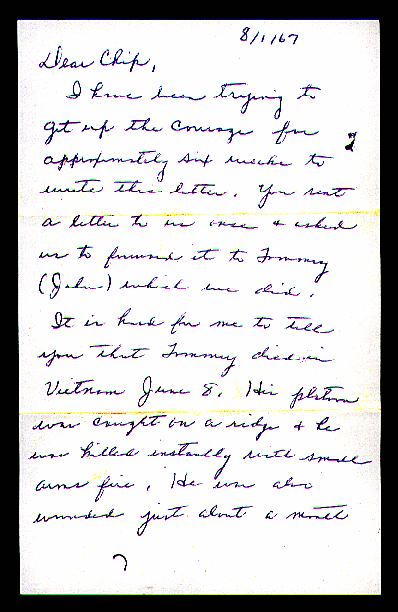 8/1/67
Dear Chip,
I have been trying to
get up the courage for
approximately six weeks to
write this letter. You sent
a letter to us once + asked
us to forward it to Tommy
(John) which we did.
It is hard for me to tell
you that Tommy died in
Vietnam June 8. His platoon
was caught on a ridge + he
was killed instantly with small
arms fire. He was also
wounded just about a month